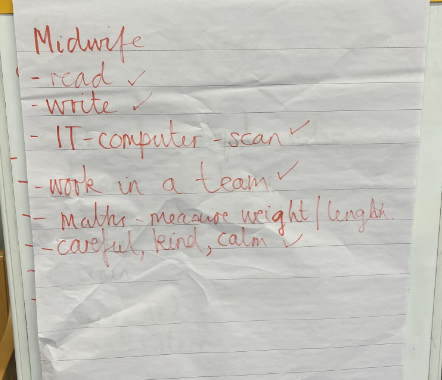 Midwife
- read ✓
- write ✓
- IT-computer-scan ✓
- work in a team ✓
- maths - measure weight/length.
- careful, kind, calm ✓